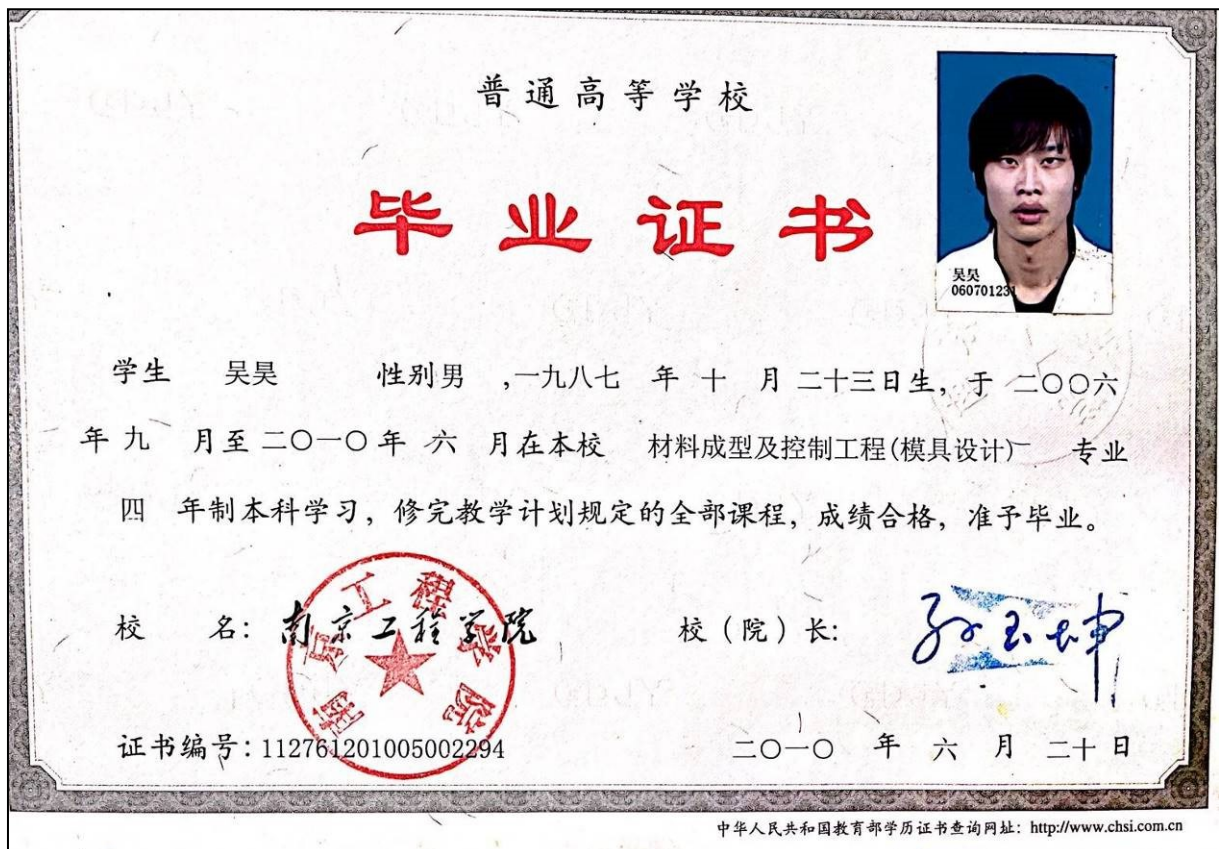 普通高等学校
毕业证书
吴昊
060701231
学生 吴昊 性别男 ,一九八七 年 十 月 二十三日生，于 二〇〇六
年 九 月至 二〇一〇 年 六 月在本校 材料成型及控制工程(模具设计) 专业
四 年制本科学习，修完教学计划规定的全部课程，成绩合格，准予毕业。
校 名：南京工程学院
南京工程学院
校（院）长：孙玉坤
证书编号：112761201005002294
二〇一〇 年 六 月 二十 日
中华人民共和国教育部学历证书查询网址：http://www.chsi.com.cn